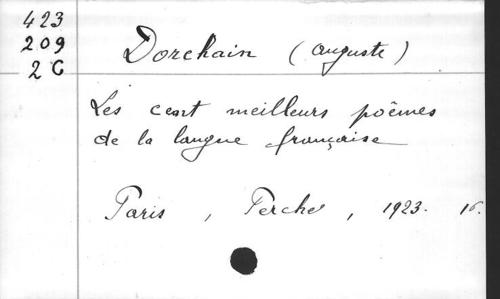 423
209
2 C
Dorchain (Auguste)
Les cent meilleurs poêmes
de la langue française
Paris, Perche, 1923. 16.